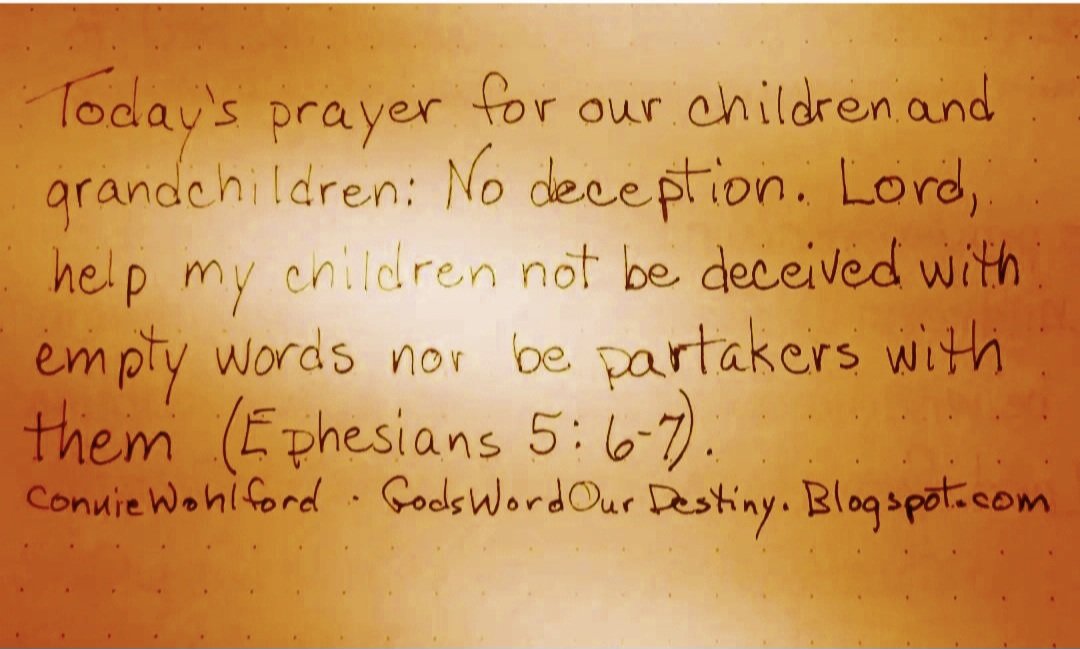 Today's prayer for our children and
grandchildren: No deception. Lord,
help my children not be deceived with
empty words nor be partakers with
them (Ephesians 5:6-7).
Connie Wohlford · GodsWordOurDestiny.Blogspot.com